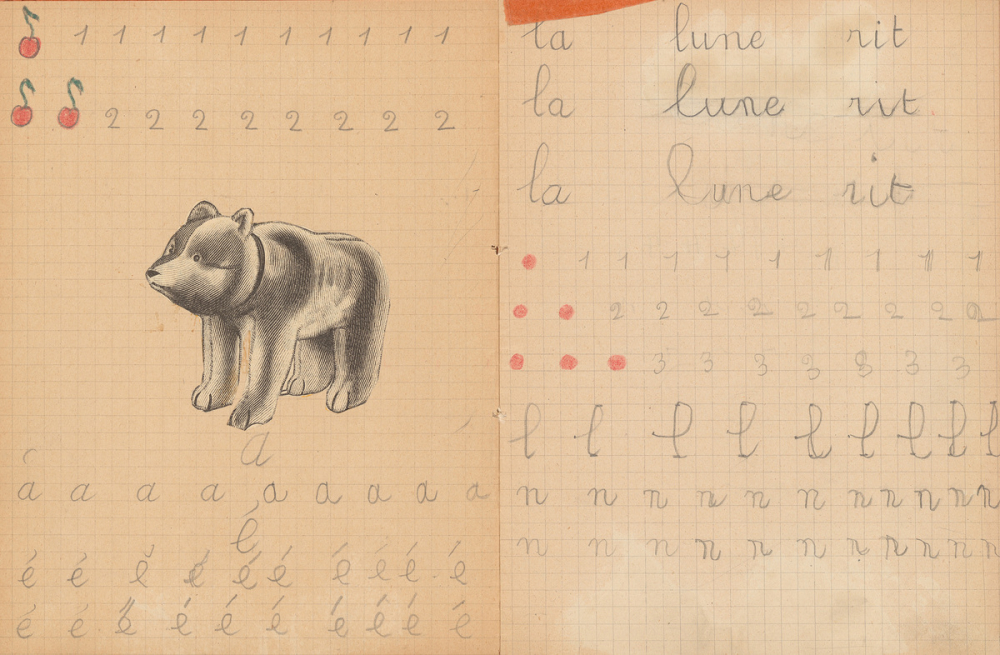 1 1 1 1 1 1 1 1 1 1
2 2 2 2 2 2 2 2
a
a a a a a a a a a
é
é é é é é é é é é é
é é é é é é é é é é
la lune rit
la lune rit
la lune rit
1 1 1 1 1 1 1 1 1
2 2 2 2 2 2 2 2 2
3 3 3 3 3 3 3
l l l l l l l l l
n n n n n n n n n n n
n n n n n n n n n n n